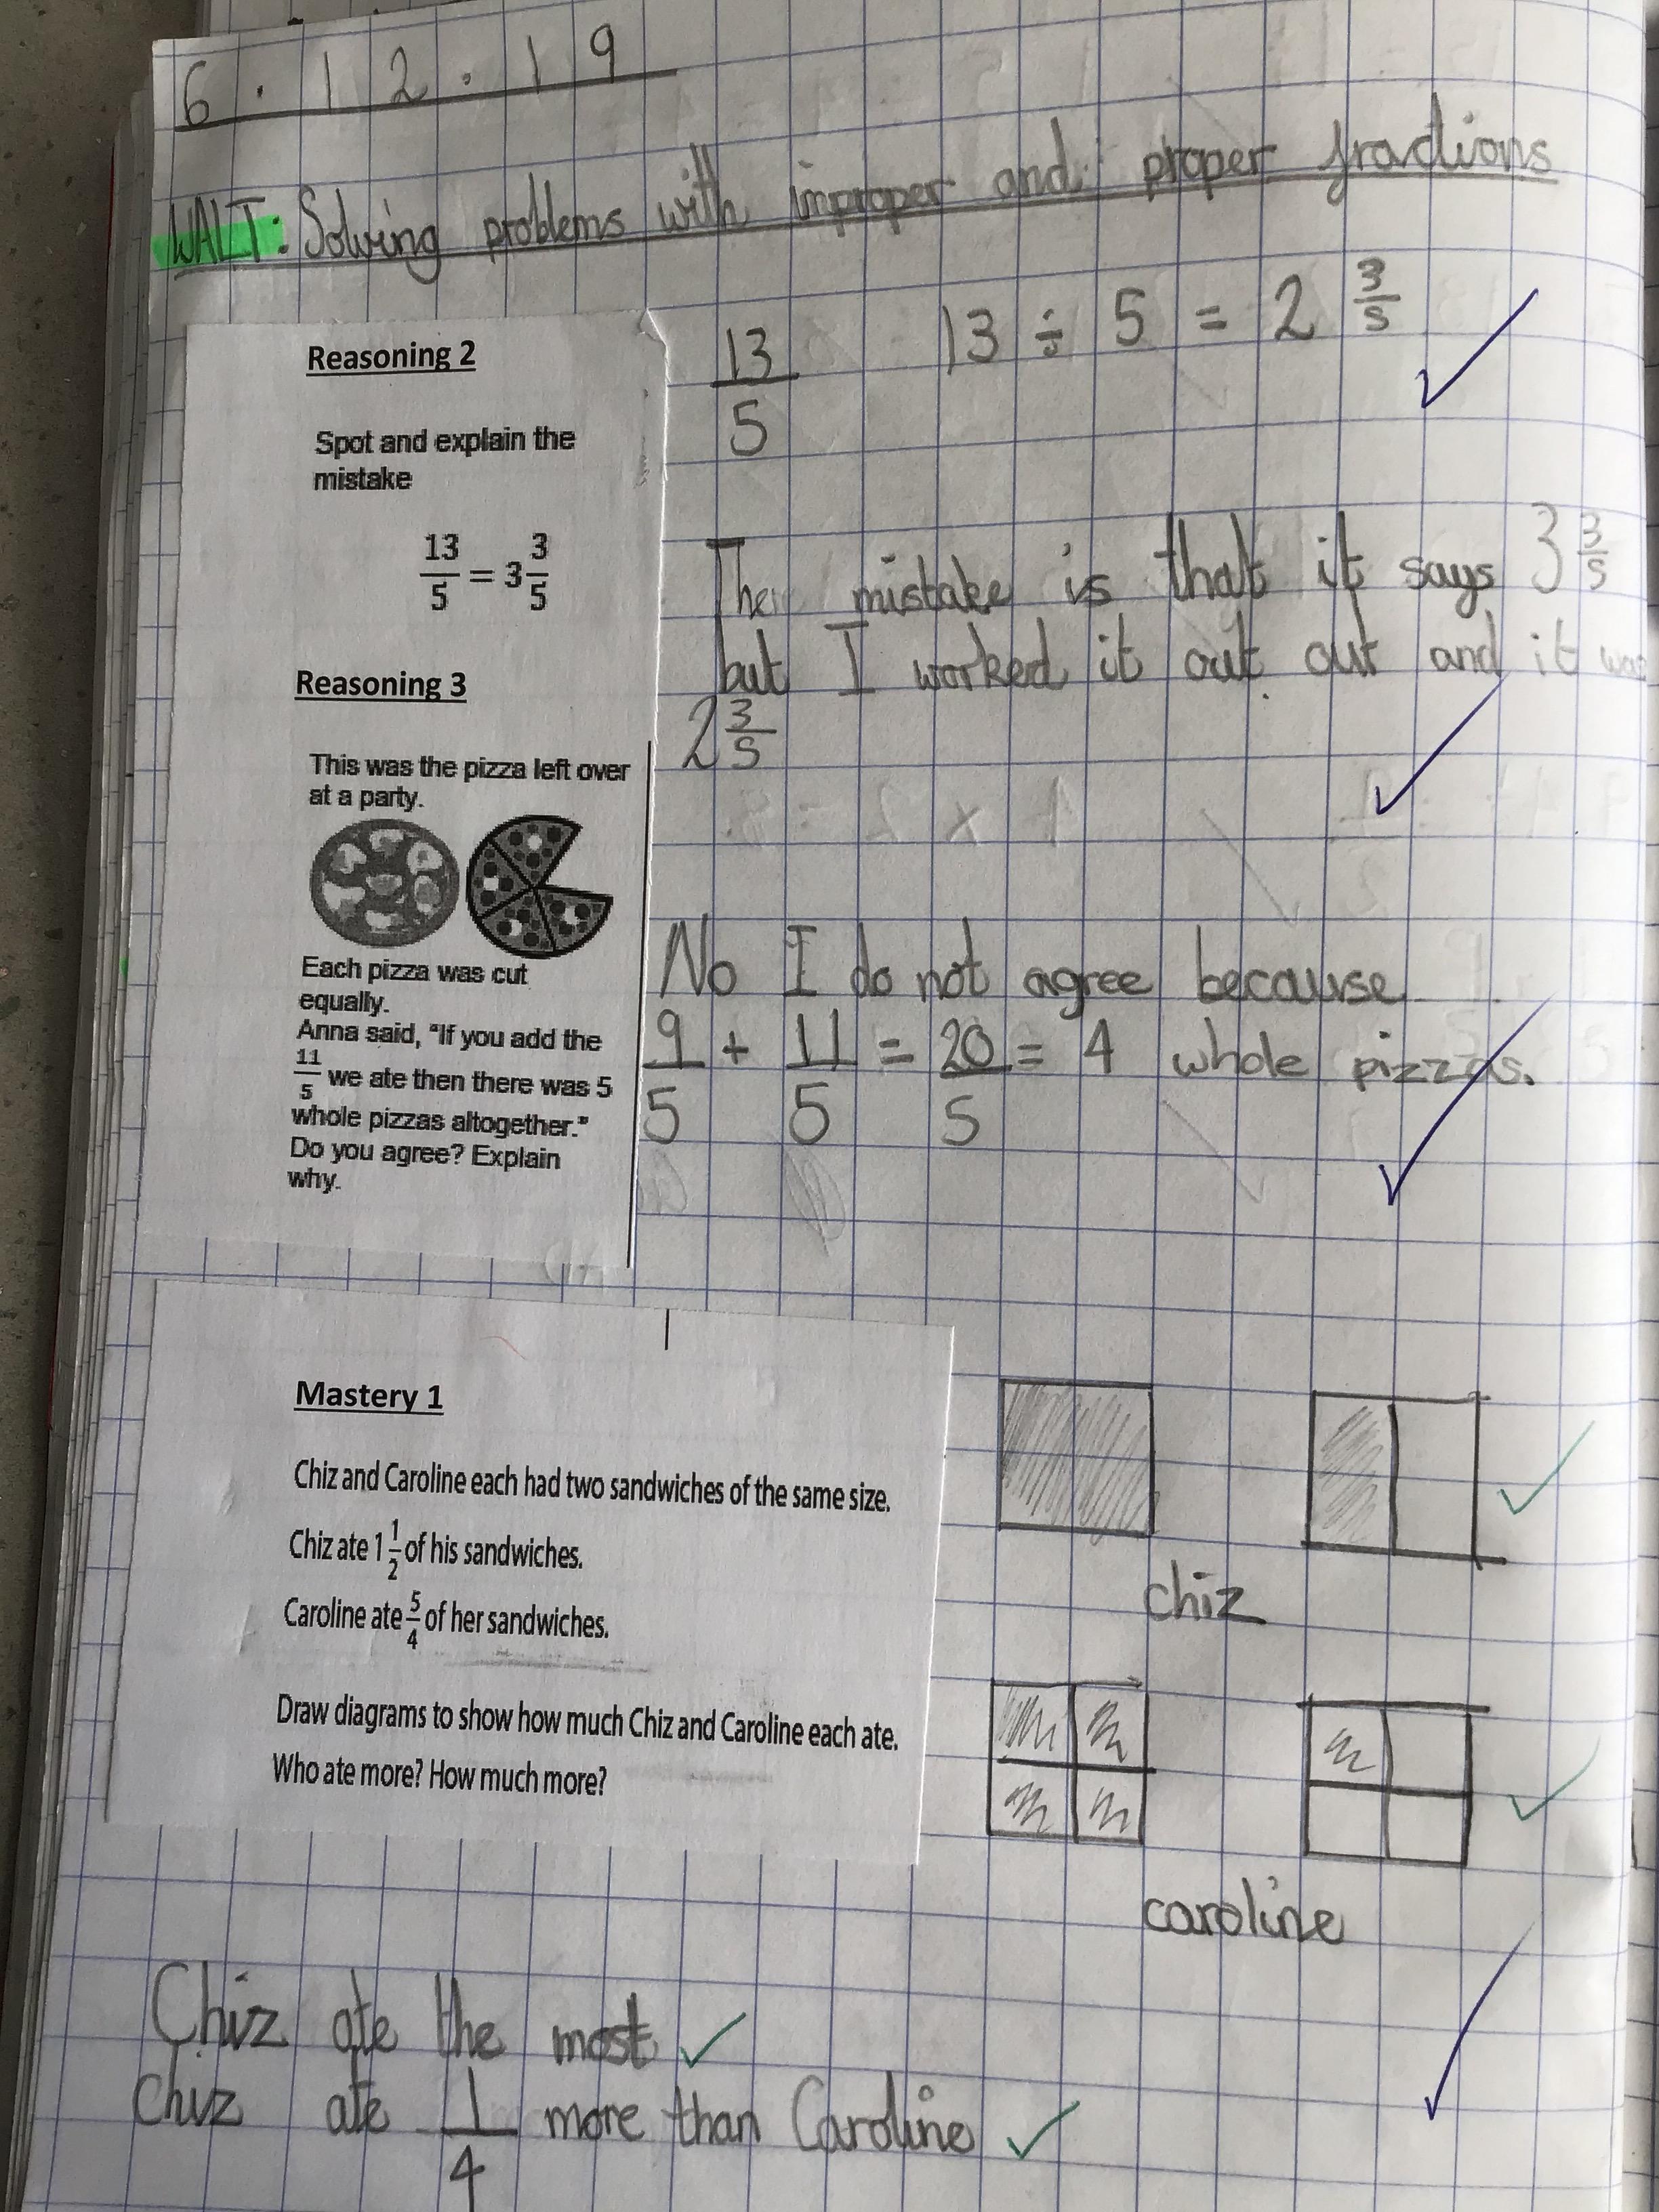 6.12.19
WALT: Solving problems with improper and proper fractions
Reasoning 2
Spot and explain the
mistake
13/5 = 3 3/5
13/5 13 ÷ 5 = 2 3/5
The mistake is that it says 3 3/5
but I worked it out out and it was
2 3/5
Reasoning 3
This was the pizza left over
at a party.
Each pizza was cut
equally.
Anna said, "If you add the
11/5 we ate then there was 5
whole pizzas altogether."
Do you agree? Explain
why.
No I do not agree because
9/5 + 11/5 = 20/5 = 4 whole pizzas.
Mastery 1
Chiz and Caroline each had two sandwiches of the same size.
Chiz ate 1 1/2 of his sandwiches.
Caroline ate 5/4 of her sandwiches.
Draw diagrams to show how much Chiz and Caroline each ate.
Who ate more? How much more?
chiz
caroline
Chiz ate the most
Chiz ate 1/4 more than Caroline